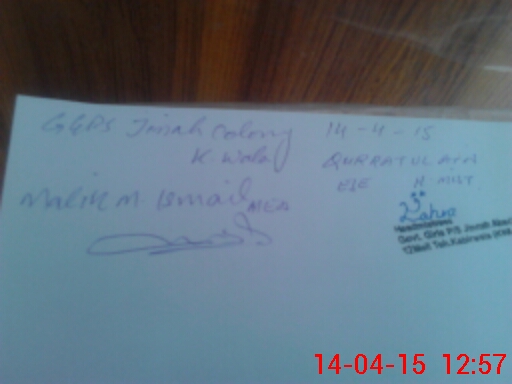 GGPS Jinah Colony
K wala
14-4-15
QURRATUL AIN
ESE H-MIST.
Malik M. Ismail MEA
Headmistress
Govt. Girls P/S Jinnah
12Mell Teh.Kabirwala
14-04-15 12:57